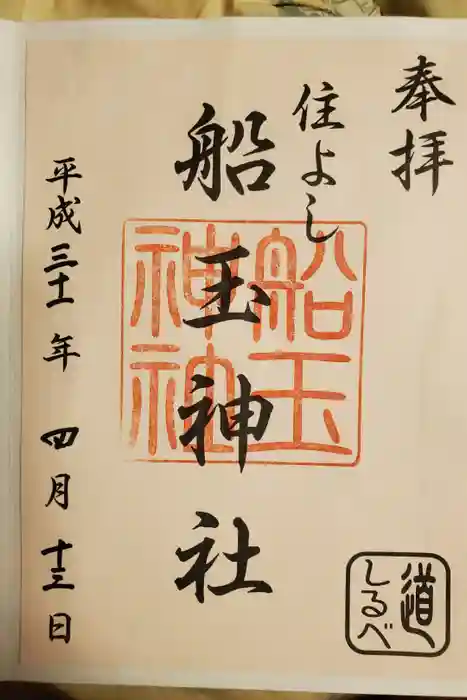 奉拝
住よし
船玉神社
船玉神社
平成三十一年 四月十三日
道しるべ